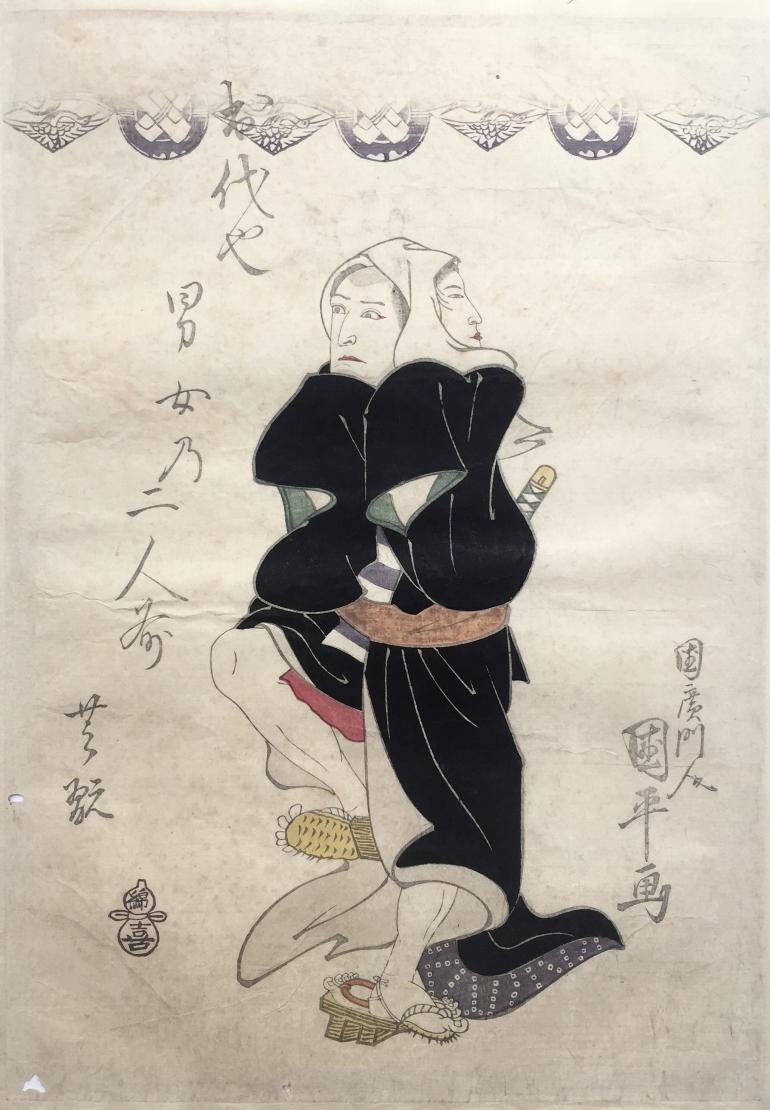 国廣門人
國平画
お代也
男女乃二人
芝翫
綿喜